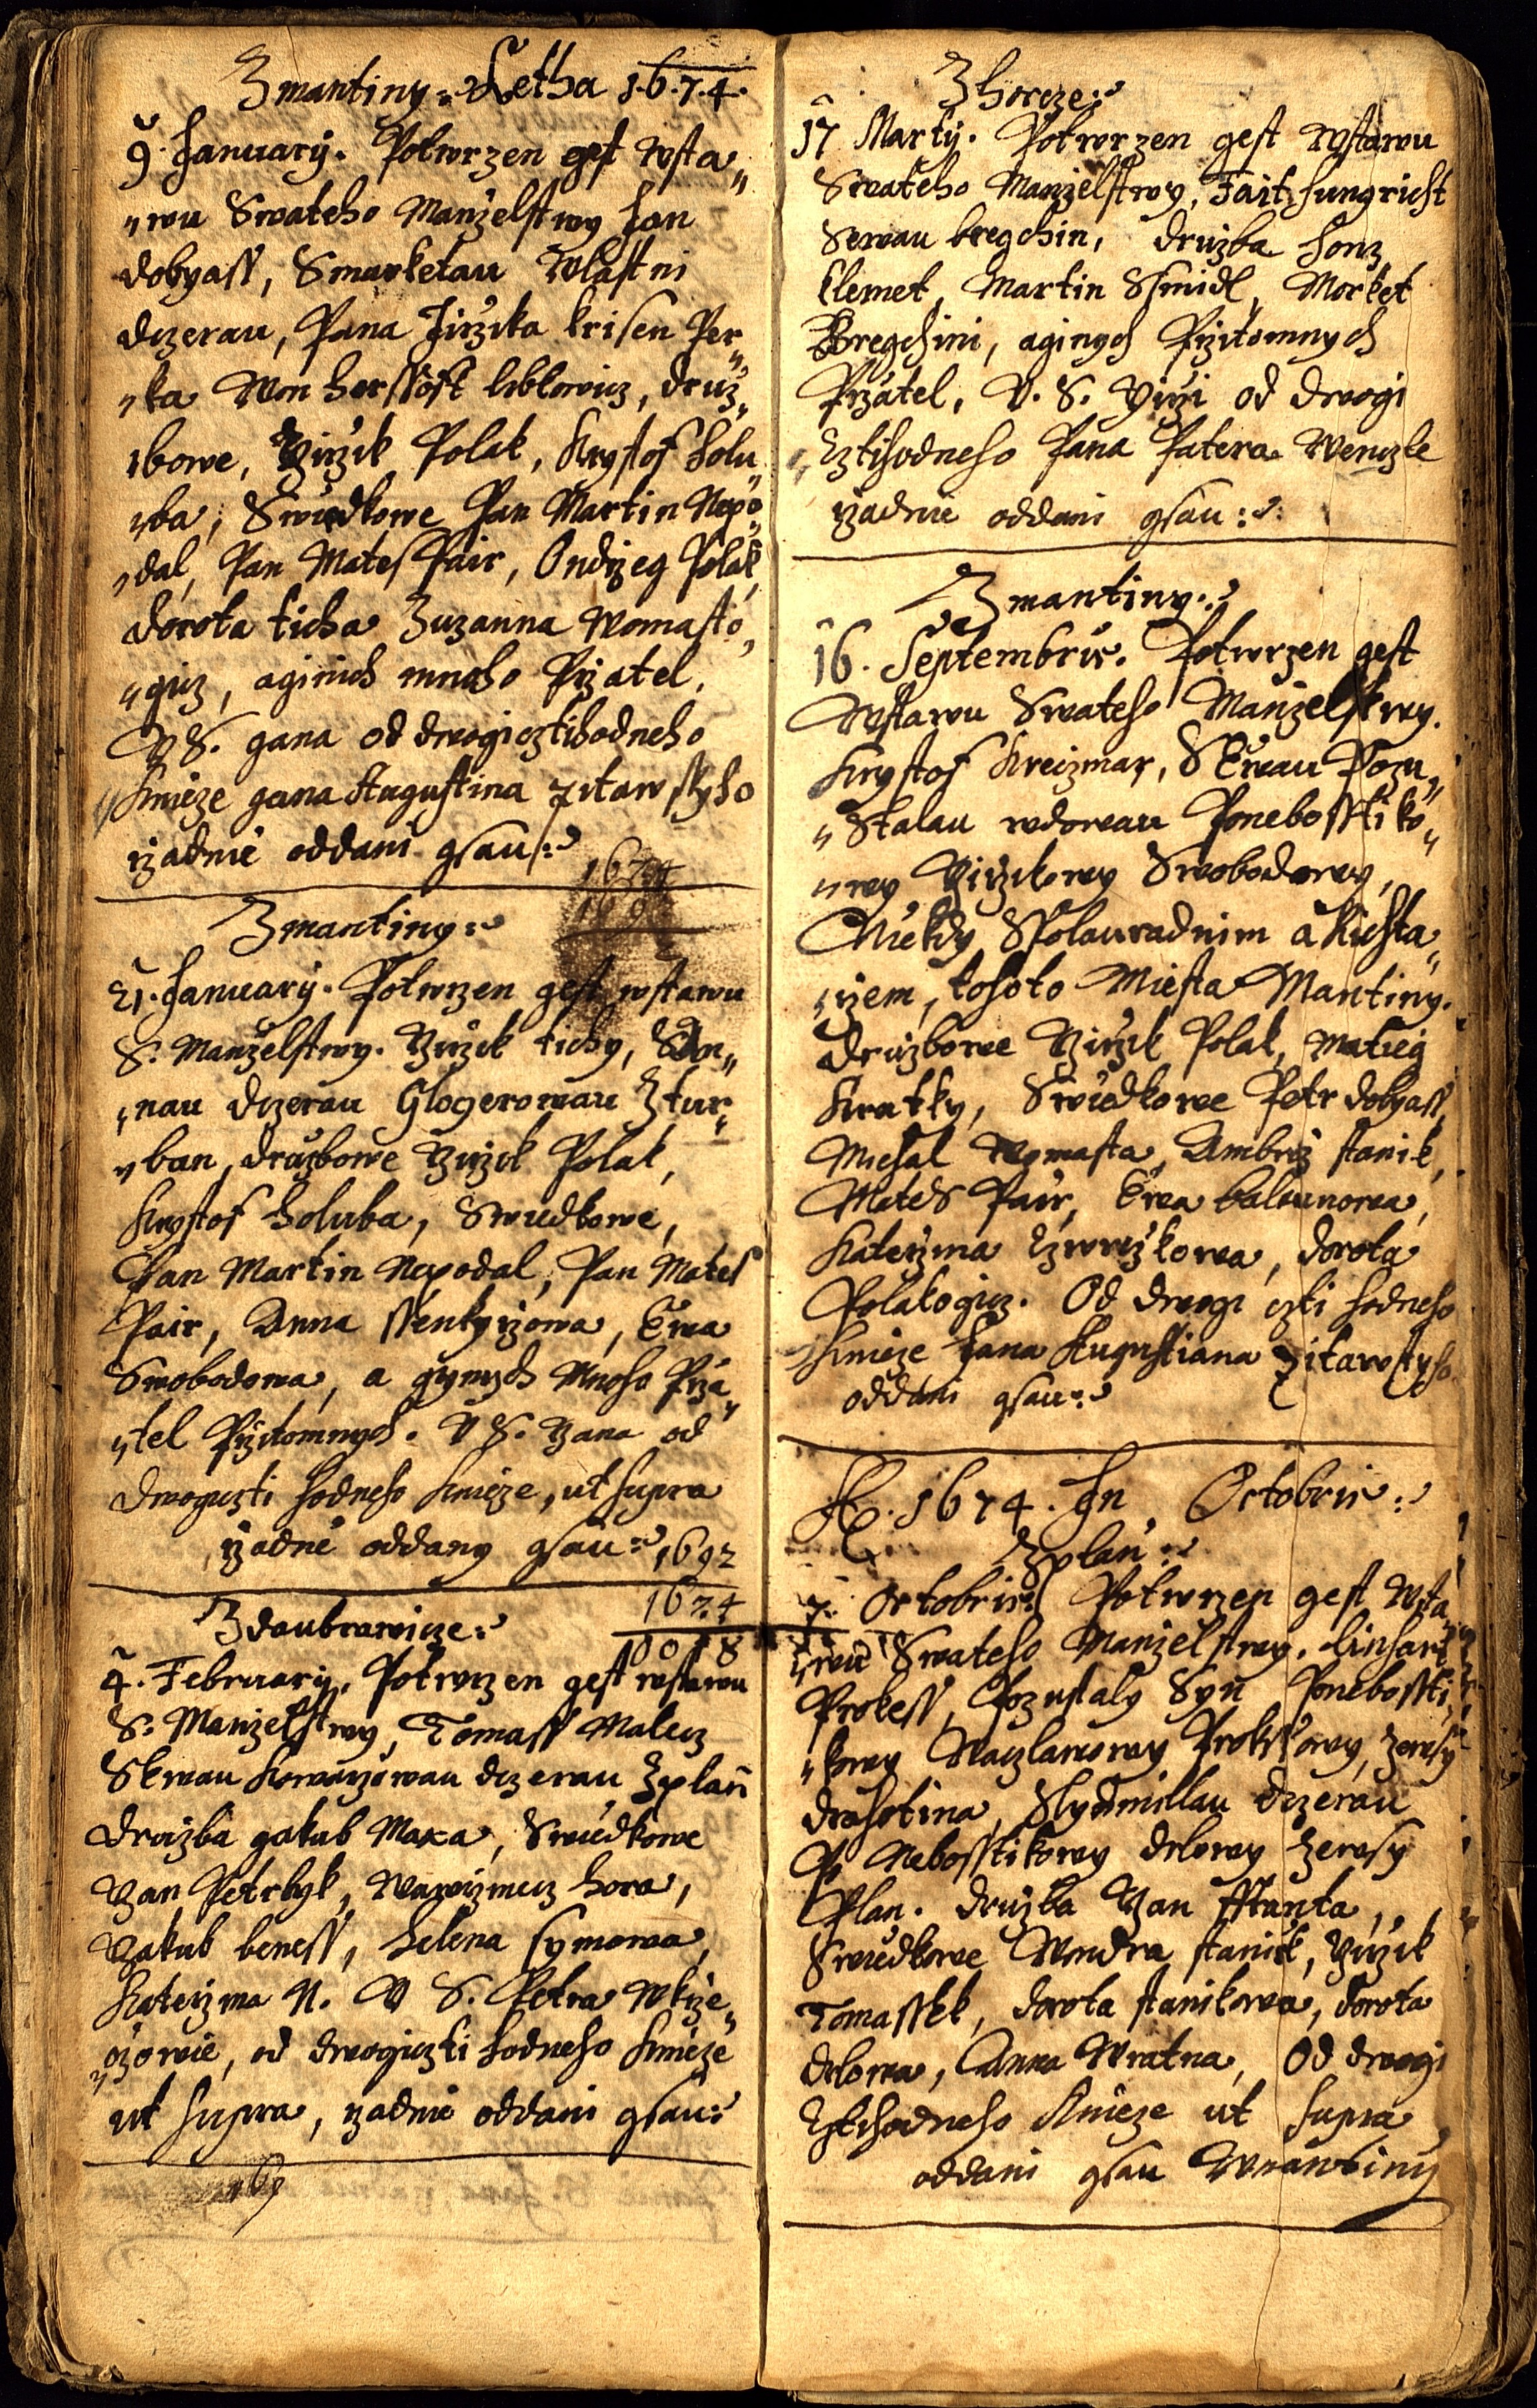 Zmantiny: Letha 1.6.7.4.
9. January. Potwrzen gest wsta„
„wu Swateho Manželstwy Jan
dobyass, Smarketau Wlastni
dczerau, Pana Jirzika krisen Per„
„ka Won herssost liblowicz, druž„
„bowe, Yirzik Polak, Krystof holu„
„ba, Swiedkowe Pan Martin Nepo„
„dal, Pan Mates Pair, Ondrzeg Polak,
dorota ticha Zuzanna Womasto„
„gicz, aginich mnoho Przatel,
V S. gana od dwogicztihodneho
Knieze gana Augustina Zitawskyho
rzadnie oddani gsau:
1674
Zmantiny:
21. January. Potwrzen gest wstawu
S. Manželstwy. Yirzik tichy, San„
„nau dczerau Glogerowau Ztur„
„ban, družbowe Yirzik Polak,
Krystof holuba, Swiedkowe,
Pan Martin Nepodal, Pan Mates
Pair, Anna ssenkyrzowa, Ewa
Swobodowa, a gynych Mnoho Prza„
„tel Przitomnych. V S. Yana od
dwogiczti hodneho Knieze, ut supra
rzadnie oddany gsau: 1692
1674
0018
Zdaubrawicze:
4. February, Potwrzen gest wstawu
S. Manželstwy, Tomass Malecz
SEwau Kowarzowau dczerau Zplan
družba gakub Maxa, Swiedkowe
Yan Petrlyk, Wawrzinecz hora,
Yakub beness, helena symowa,
Katerzina N. V S. Petra Wkrze„
„czowie, od dwogiczti hodneho Knieze
ut supra, rzadnie oddani gsau:
169
Zhorcze:
17 Marty. Potwrzen gest wstawu
Swateho Manželstwy, Fait Jungricht
Sewau bregchin, družba honz
Klemet, Martin Smidl, Morket
Bregchini, aginych Przitomnych
Przatel, V. S. Yirzi od dwogi
Cztihodneho Pana Patera Wenczle
rzadnie oddani gsau:
Zmantiny:
16. Septembris. Potwrzen gest
Wstawu Swateho Manželstwy.
Krystof Kreczmar, SEwau Pozu„
„stalau wdowau Ponebosstiko„
„wy Yirzikowy Swobodowy,
Niekdy Spolauradnim a Richta„
„rzem, tohoto Miesta Mantiny.
družbowe Yirzik Polak, Matieg
Kratky, Swiedkowe Petr dobyass,
Michal Womasta, Ambrož stanik,
Mates Pair, Ewa balounowa,
Katerzina Czwrczkowa, dorota
Polakogicz. Od dwogi czti hodneho
Knieze Jana Augustiana Zitawskyho
oddani gsau:
A. 1674. In Octobris:
Zplan:
7. Octobris. Potwrzen gest wsta„
„wu Swateho Manželstwy, linhart
Prokess, Pozustaly Syn Ponebossti„
„kowy Waczlawowy Prokssowy, zewsy
drahotina, Slydmillau dczerau
Po Nebosstikowy drlowy zewsy
Plan. družba Yan Franta,
Swiedkowe Wondra stanik, Yirzik
Tomassek, dorota stanikowa, dorota
drlowa, Anna Wratna, Od dwogi
Cztihodneho Knieze ut supra
oddani gsau Wmantiny